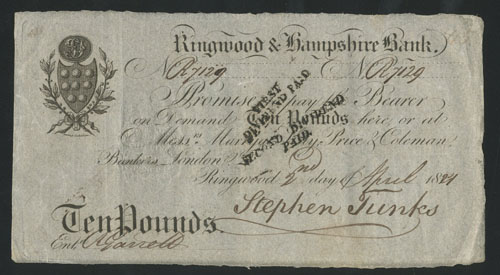 Ringwood & Hampshire Bank.
No R7129 No R7129
Promise to pay the Bearer
on Demand Ten Pounds here, or at
Mess.rs Price & Coleman
Bankers London
Ringwood 2nd day of April 1821
Stephen Tunks
Ten Pounds
Ent.d
FIRST
DIVIDEND PAID
SECOND DIVIDEND
PAID.